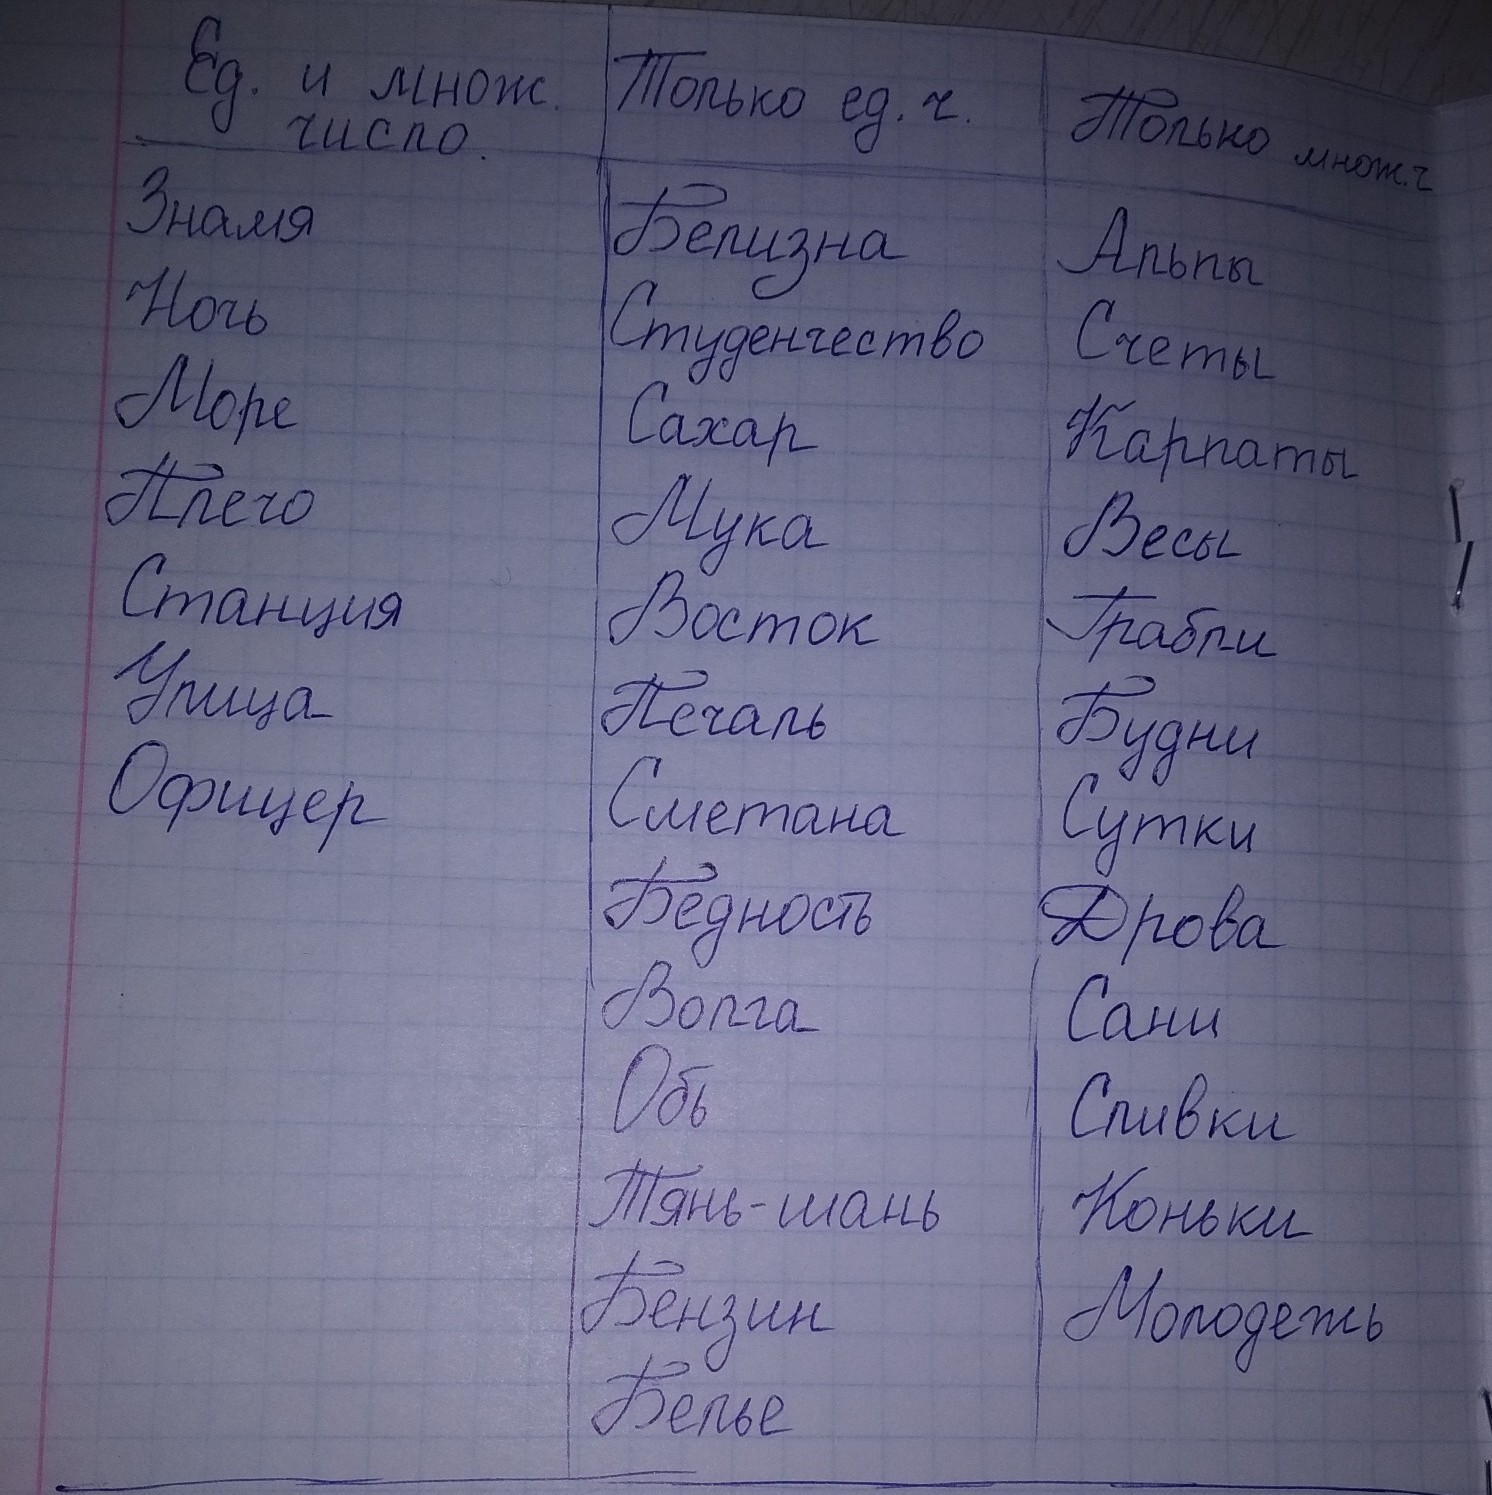 Ед. и множ. число.
Знамя
Ночь
Море
Плечо
Станция
Улица
Офицер
Только ед. ч.
Белизна
Студенчество
Сахар
Мука
Восток
Печаль
Сметана
Бедность
Волга
Обь
Тянь-шань
Бензин
Белье
Только множ. ч
Альпы
Счеты
Карпаты
Весы
Грабли
Будни
Сутки
Дрова
Сани
Сливки
Коньки
Молодежь